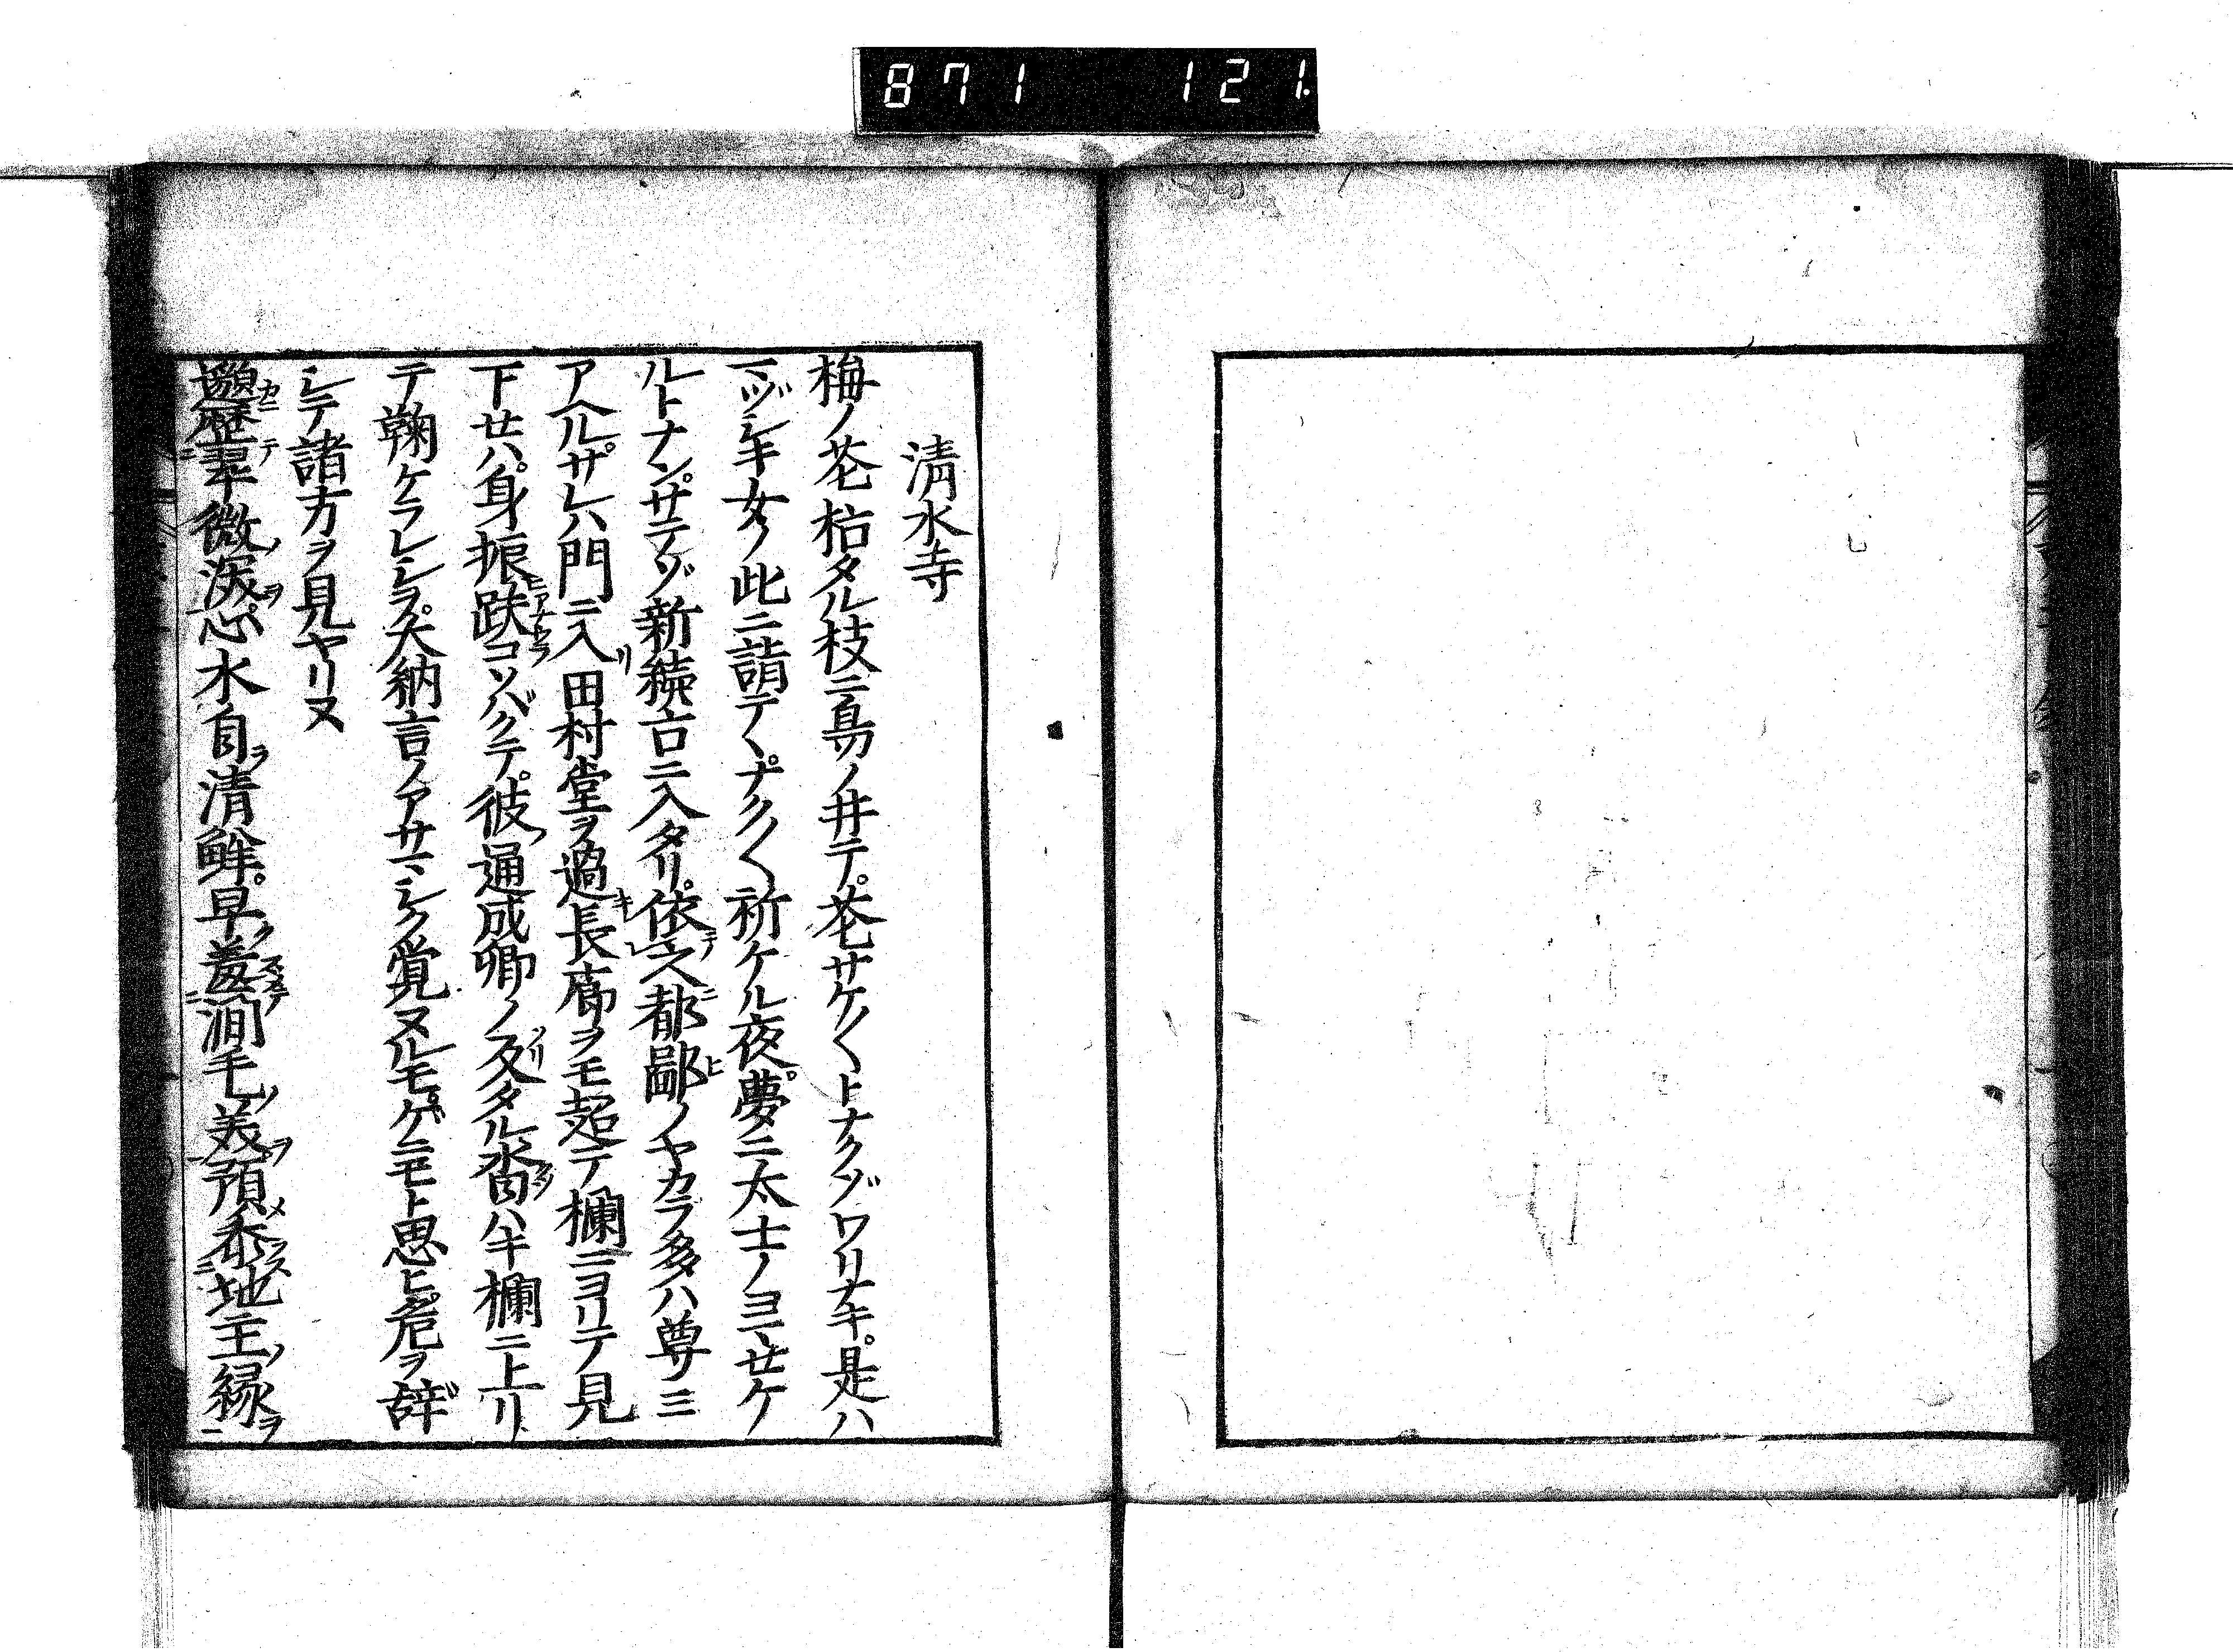 871 121.
清水寺
梅ノ花枯タル枝ニ鳥ノ井テ。花サケ〱トナクゾワリナキ。是ハ
マヅシキ女ノ此ニ詣テヽ。ナク〱祈ケル夜。夢ニ太士ノヨマセケ
ルトナン。サテゾ新続古ニ入タリ。依之都鄙ノヤカラ多ハ尊サミ
アヘル。サレハ門ニ入田村堂ヲ過長廊ヲモ起テ欄ニヨリテ見
下セハ。身振跌コソバクテ。彼通成卿ノ及タル沓ハキ欄ニ上リ
テ鞠ケラレシヲ。大納言ノアサマシク覚ヌルモ。ゲニモト思ヒ。危ヲ辞
シテ諸方ヲ見ヤリヌ
歴翠微心水自清鮮。早羞澗毛美預黍地主縁